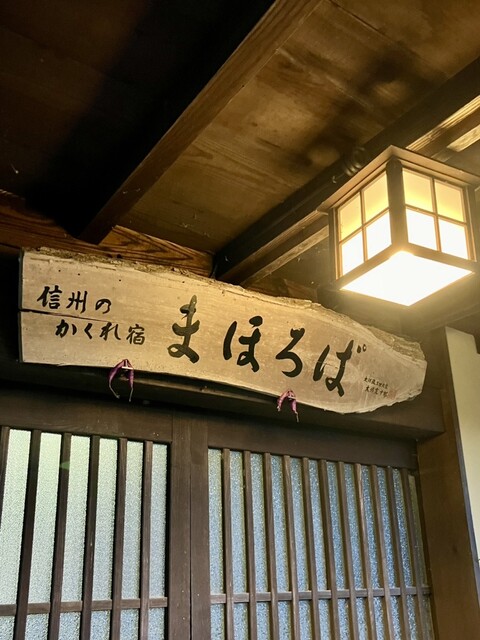 信州の
かくれ宿
まほろば